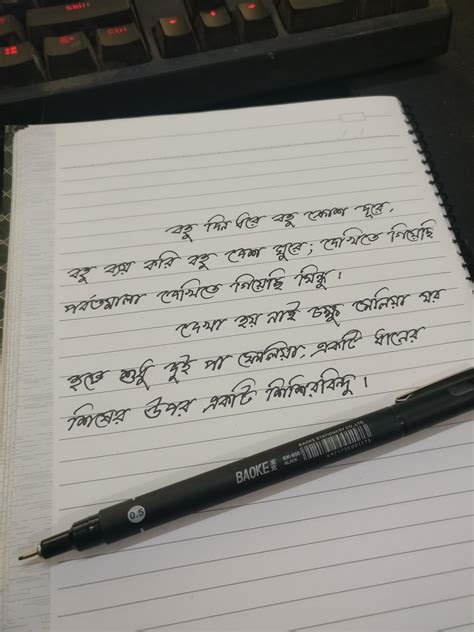 Ctrl
Shift
বহু দিন ধরে বহু ক্রোশ দূরে,
বহু ব্যয় করি বহু দেশ ঘুরে; দেখিতে গিয়েছি
পর্বতমালা দেখিতে গিয়েছি সিন্ধু।
দেখা হয় নাই চক্ষু মেলিয়া ঘর
হতে শুধু দুই পা ফেলিয়া, একটি ধানের
শিষের উপর একটি শিশিরবিন্দু।
BAOKE
BLACK
BAOKE STATIONERY CO.,LTD.
0.5